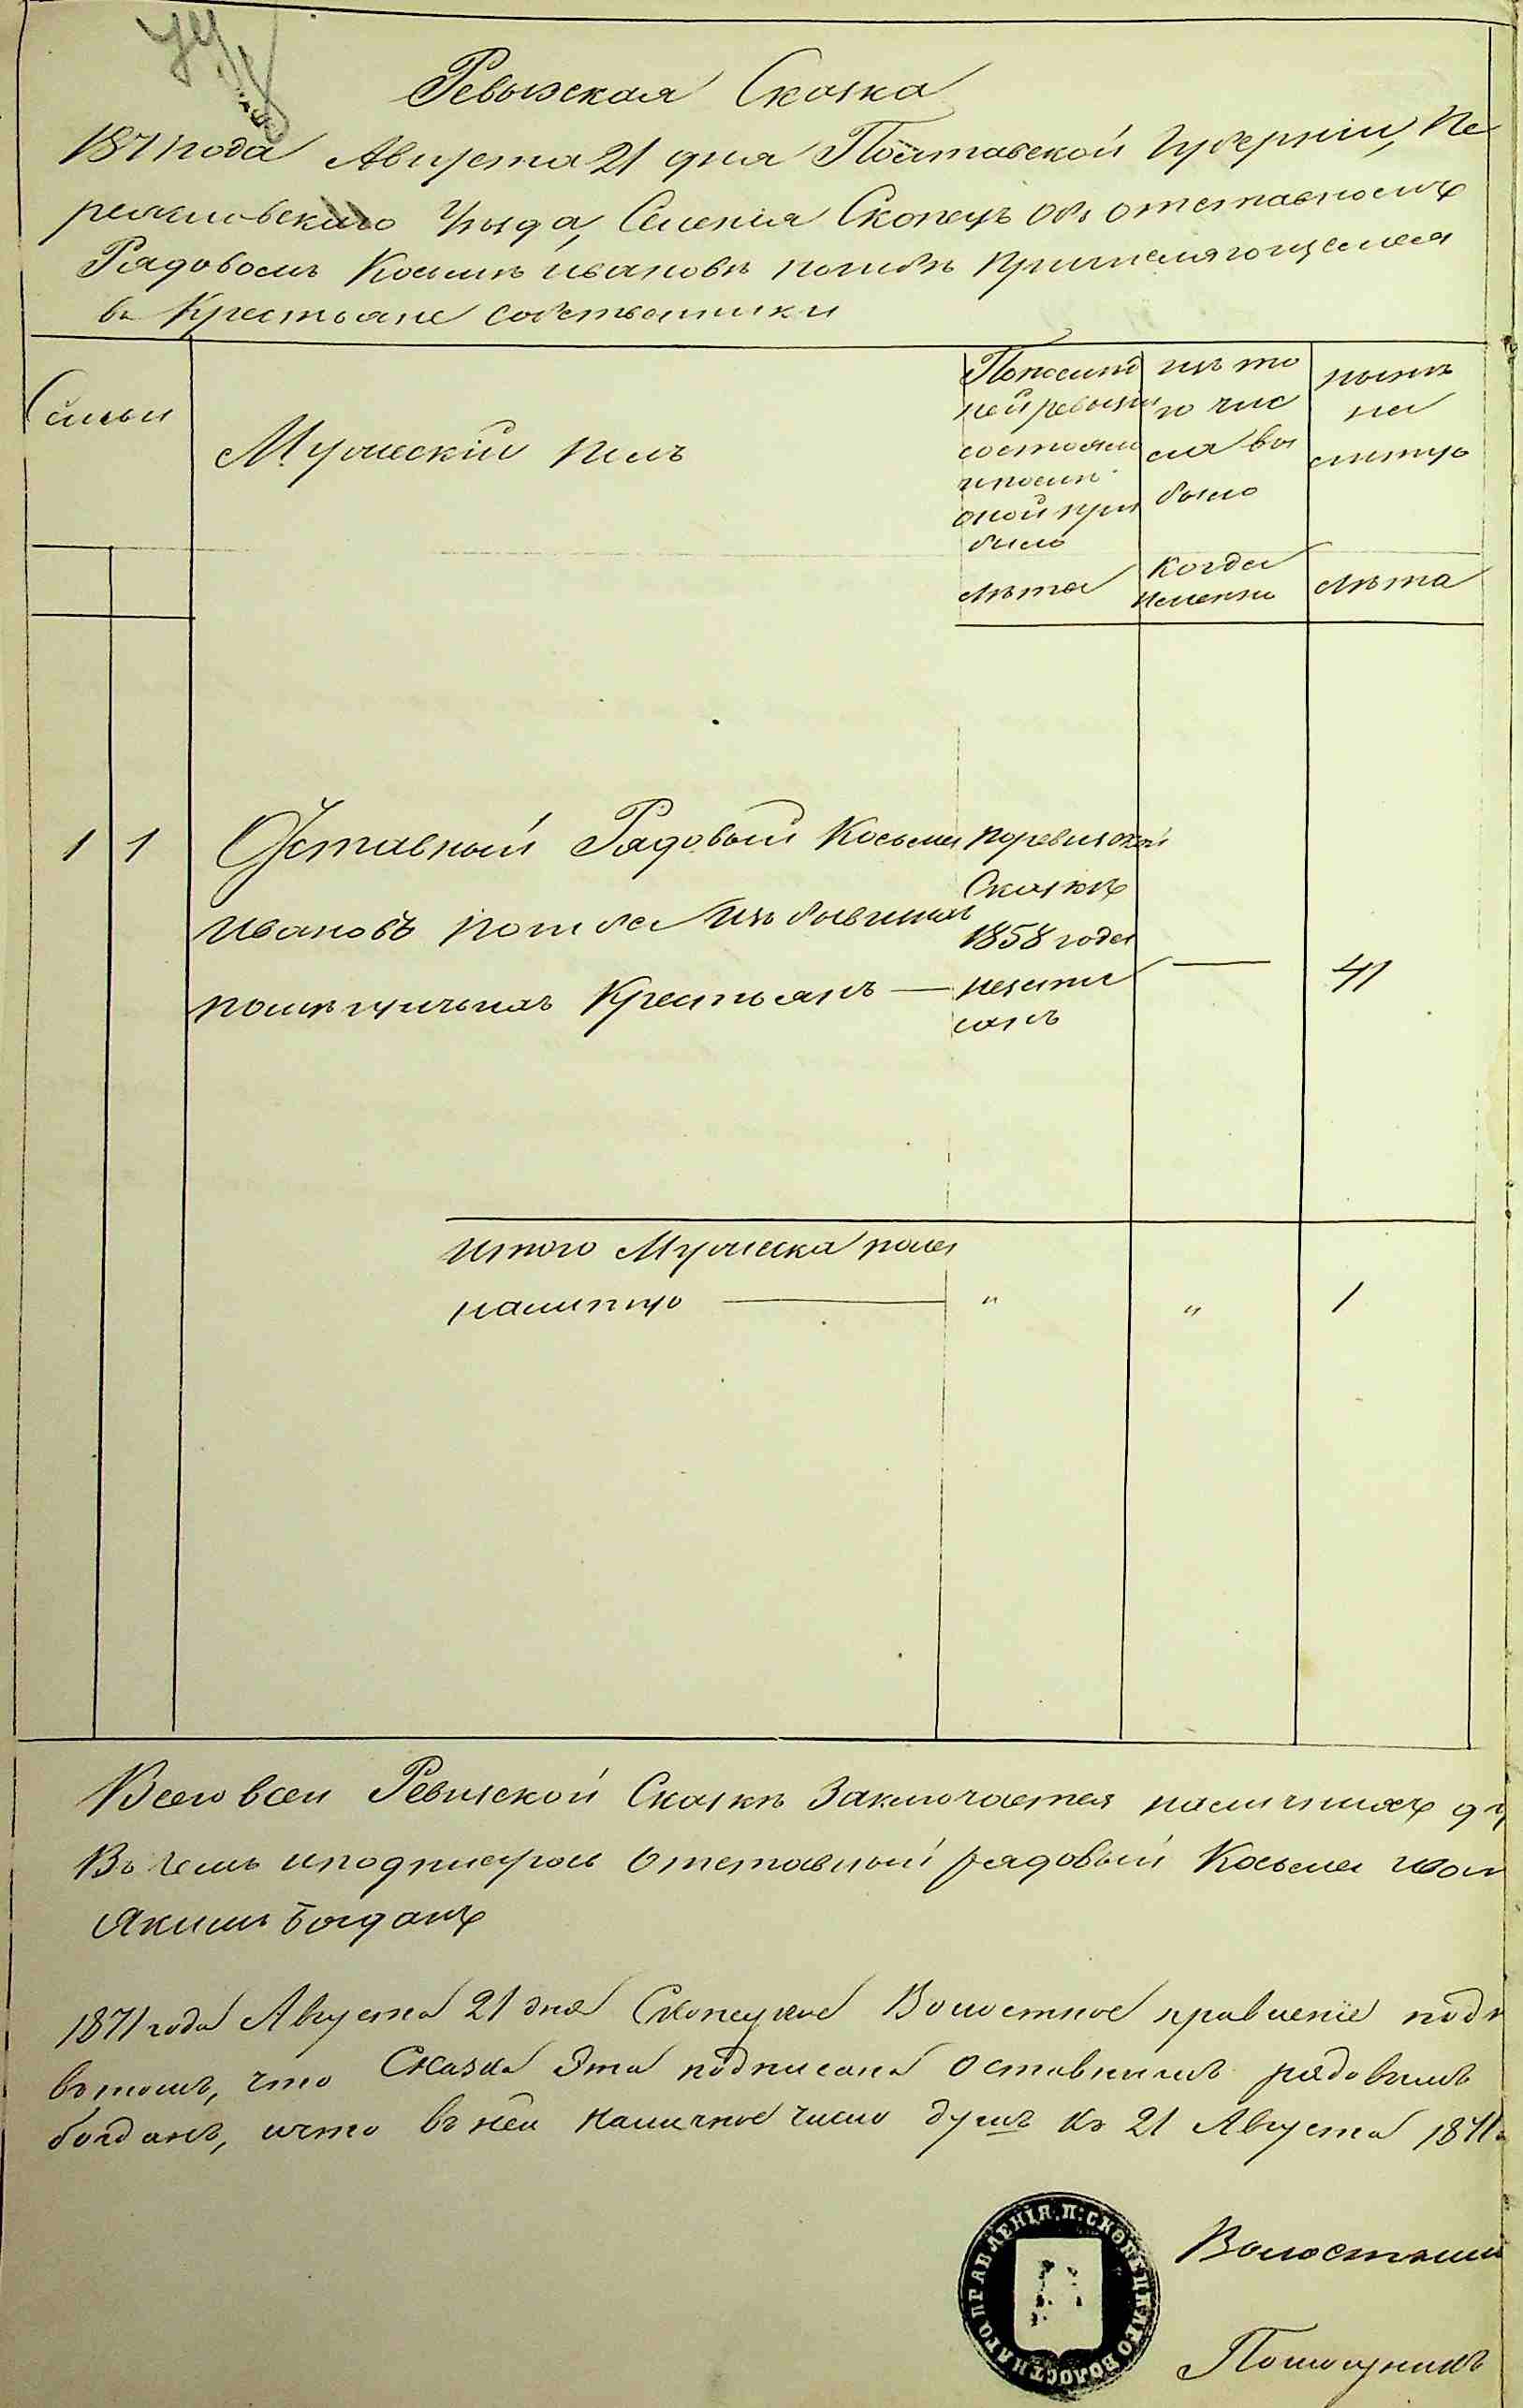 Ревызская Сказка
1871 года Августа 21 дня Полтавской Губерніи, Пе
реяславскаго Уѣзда, Селенія Скопецъ Объ отставномъ
Рядовомъ Козмѣ Ивановѣ причисляющемся
въ Крестьяне собственники
Семьи
Мужескій полъ
По послѣд
ней ревызіи
состояло
и послѣ
оной при
было
изъ то
го чис
ла вы
было
нынѣ
на
лицо
лѣта
когда
именно
лѣта
1 1 Отставный Рядовый Косьма
Ивановъ изъ бывшихъ
помѣщичьихъ Крестьянъ —
поревизской
Сказкѣ
1858 года
незапи
санъ
— 41
Итого Мужеска пола
налицо — " " 1
Всего всей Ревизской Сказкѣ Заключается наличныхъ
Въ чемъ иподписуюсь Отставный рядовый Косьма Иван
Якимъ Богданъ
1871 года Августа 21 дня Скопецкое Волостное правленіе
вътомъ, что Сказка Эта подписана Отставнымъ рядовымъ
Богданъ, ичто въ ней Наличное число душъ Къ 21 Августа 1871
П. СКОПЕЦКАГО ВОЛОСТНАГО ПРАВЛЕНІЯ
Волостный
Помощникъ